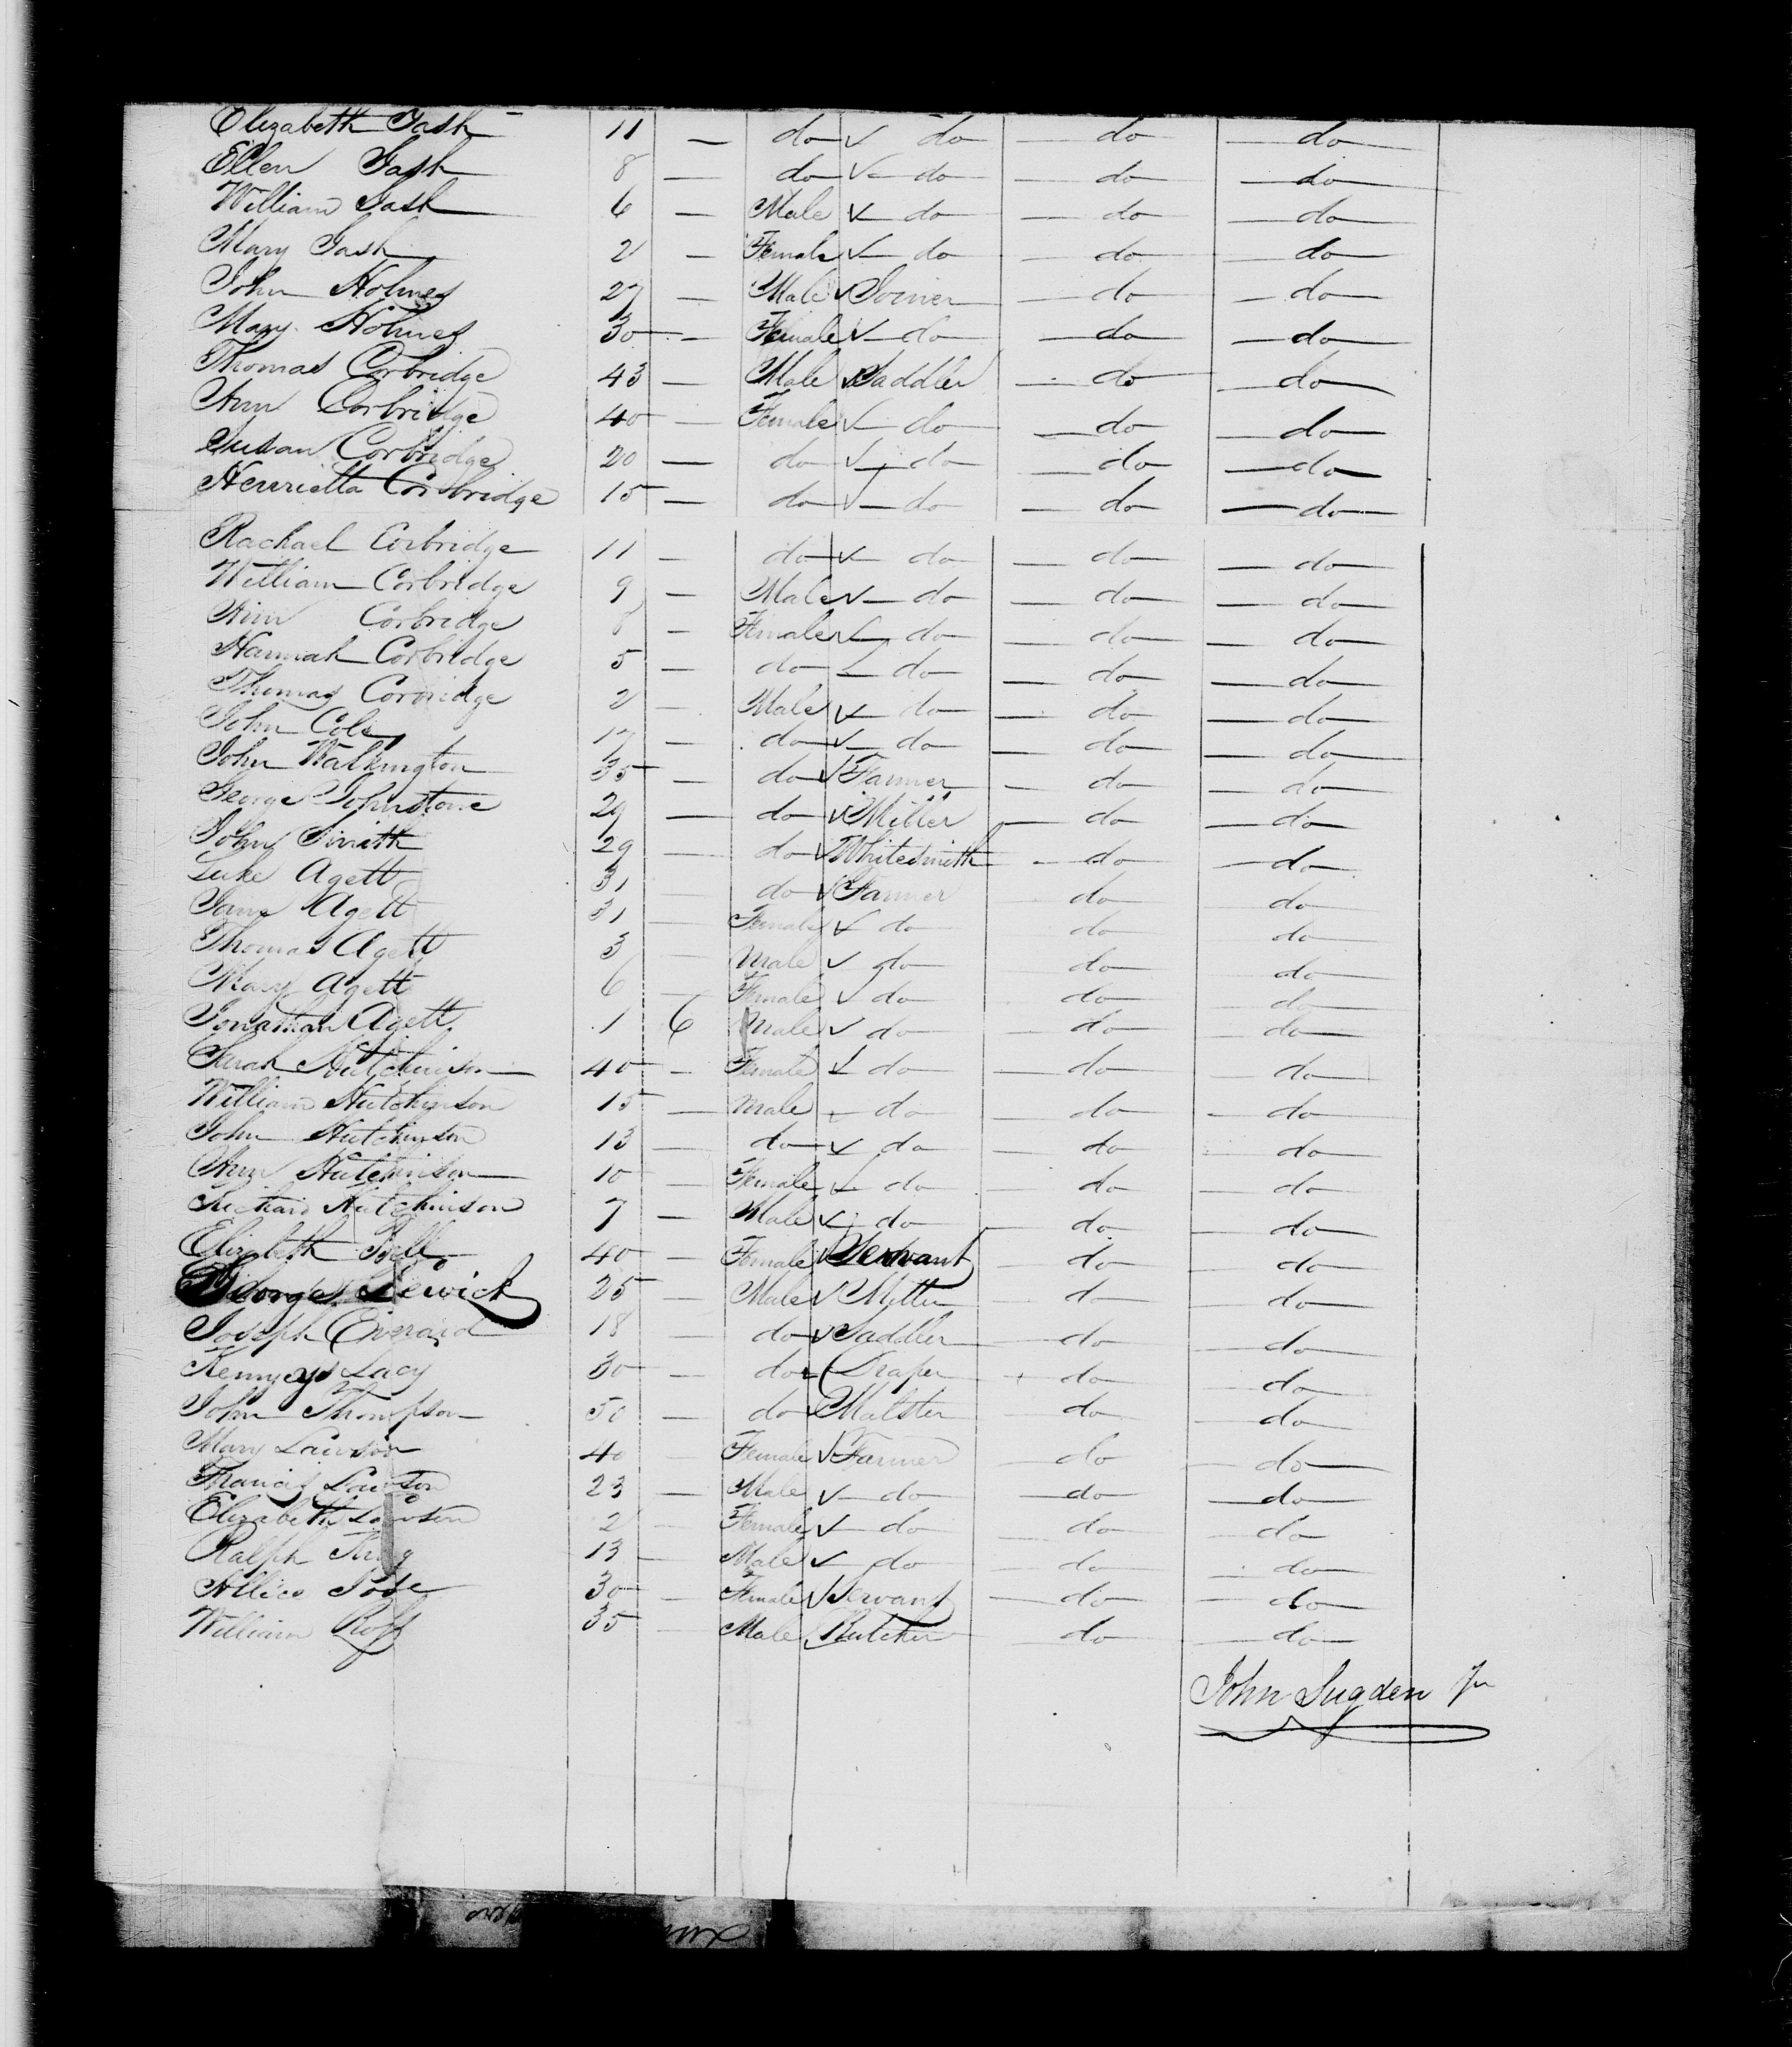 Elizabeth Gash 11 — do ✓ do — do — do
Ellen Gash 8 — do ✓ do — do — do
William Gash 6 — Male ✓ do — do — do
Mary Gash 2 — Female ✓ do — do — do
John Holmes 27 — Male ✓ Joiner — do — do
Mary Holmes 30 — Female ✓ do — do — do
Thomas Corbridge 43 — Male ✓ Saddler — do — do
Ann Corbridge 40 — Female ✓ do — do — do
Susan Corbridge 20 — do ✓ do — do — do
Henrietta Corbridge 15 — do ✓ do — do — do
Rachael Corbridge 11 — do ✓ do — do — do
William Corbridge 9 — Male ✓ do — do — do
Ann Corbridge 8 — Female ✓ do — do — do
Hannah Corbridge 5 — do ✓ do — do — do
Thomas Corbridge 2 — Male ✓ do — do — do
John Cole 17 — do ✓ do — do — do
John Walkington 35 — do ✓ Farmer — do — do
George Johnstone 29 — do ✓ Miller — do — do
John Smith 29 — do ✓ Whitesmith — do — do
Luke Agett 31 — do ✓ Farmer do do
Jane Agett 31 — Female ✓ do do do
Thomas Agett 3 — Male ✓ do do do
Mary Agett 6 — Female ✓ do do do
Jonathan Agett 1 6 Male ✓ do — do — do
Sarah Hutchinson 40 — Female ✓ do — do — do
William Hutchinson 15 — Male — do — do — do
John Hutchinson 13 — do ✓ do — do — do
Ann Hutchinson 10 — Female ✓ do — do — do
Richard Hutchinson 7 — Male ✓ do — do — do
Elizabeth Bell 40 — Female ✓ Servant — do — do
George Sewick 25 — Male ✓ Miller do — do
Joseph Everard 18 — do ✓ Saddler — do — do
Kemyys Lacy 30 — do ✓ Draper do — do
John Thompson 50 — do ✓ Malster — do — do
Mary Lawson 40 — Female ✓ Farmer — do — do
Francis Lawson 23 — Male ✓ do — do — do
Elizabeth Lawson 2 — Female ✓ do — do — do
Ralph King 13 — Male ✓ do — do — do
Allice 30 — Female ✓ Servant — do — do
William 35 — Male Butcher — do — do
John Sugden Jr